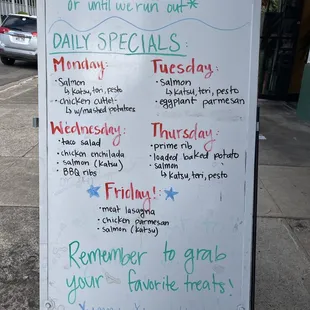 or until we run out*
DAILY SPECIALS:
Monday:
· Salmon
↳ Katsu, teri, pesto
· chicken cutlet-
↳ w/mashed potatoes
Tuesday:
· Salmon
↳ Katsu, teri, pesto
· eggplant parmesan
Wednesday:
· taco salad
· chicken enchilada
· salmon (katsu)
· BBQ ribs
Thursday:
· prime rib
· loaded baked potato
· salmon
↳ Katsu, teri, pesto
Friday!:
· meat lasagna
· chicken parmesan
· salmon (katsu)
Remember to grab
your favorite treats!